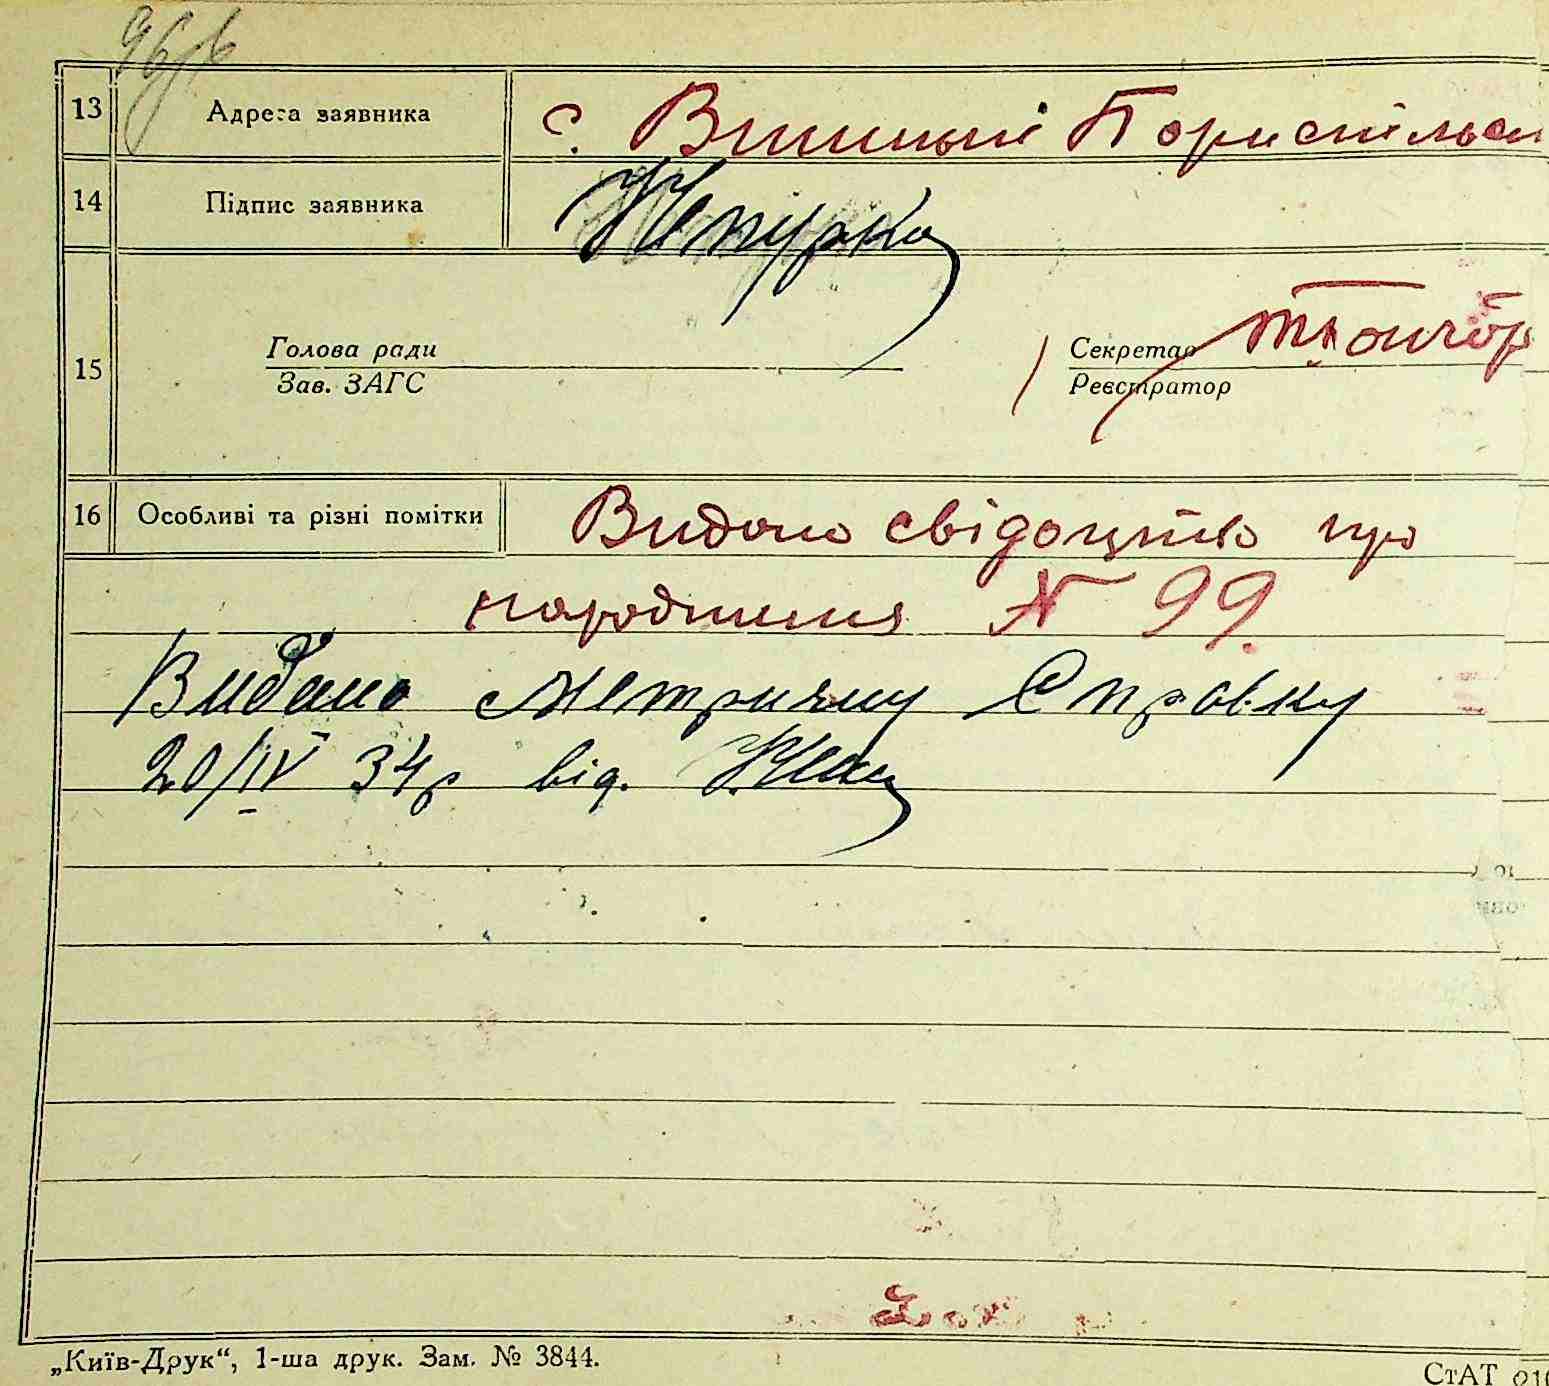 13 Адреса заявника с. Вишеньки Бориспільськ
14 Підпис заявника
15 Голова ради
Зав. ЗАГС
Секретар
Реєстратор
16 Особливі та різні помітки Видано свідоцтво про
народження № 99.
Видано метричну Справку
20/IV 34р від.
„Київ-Друк“, 1-ша друк. Зам. № 3844.
СтАТ